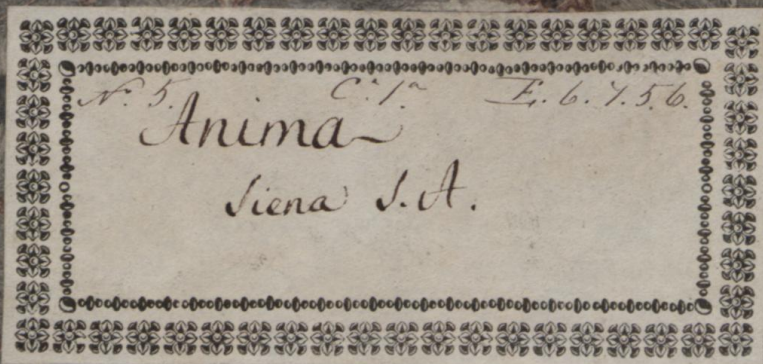 N.º 5. C.ª 1.ª E. 6. 7. 5. 6.
Anima
Siena S. A.